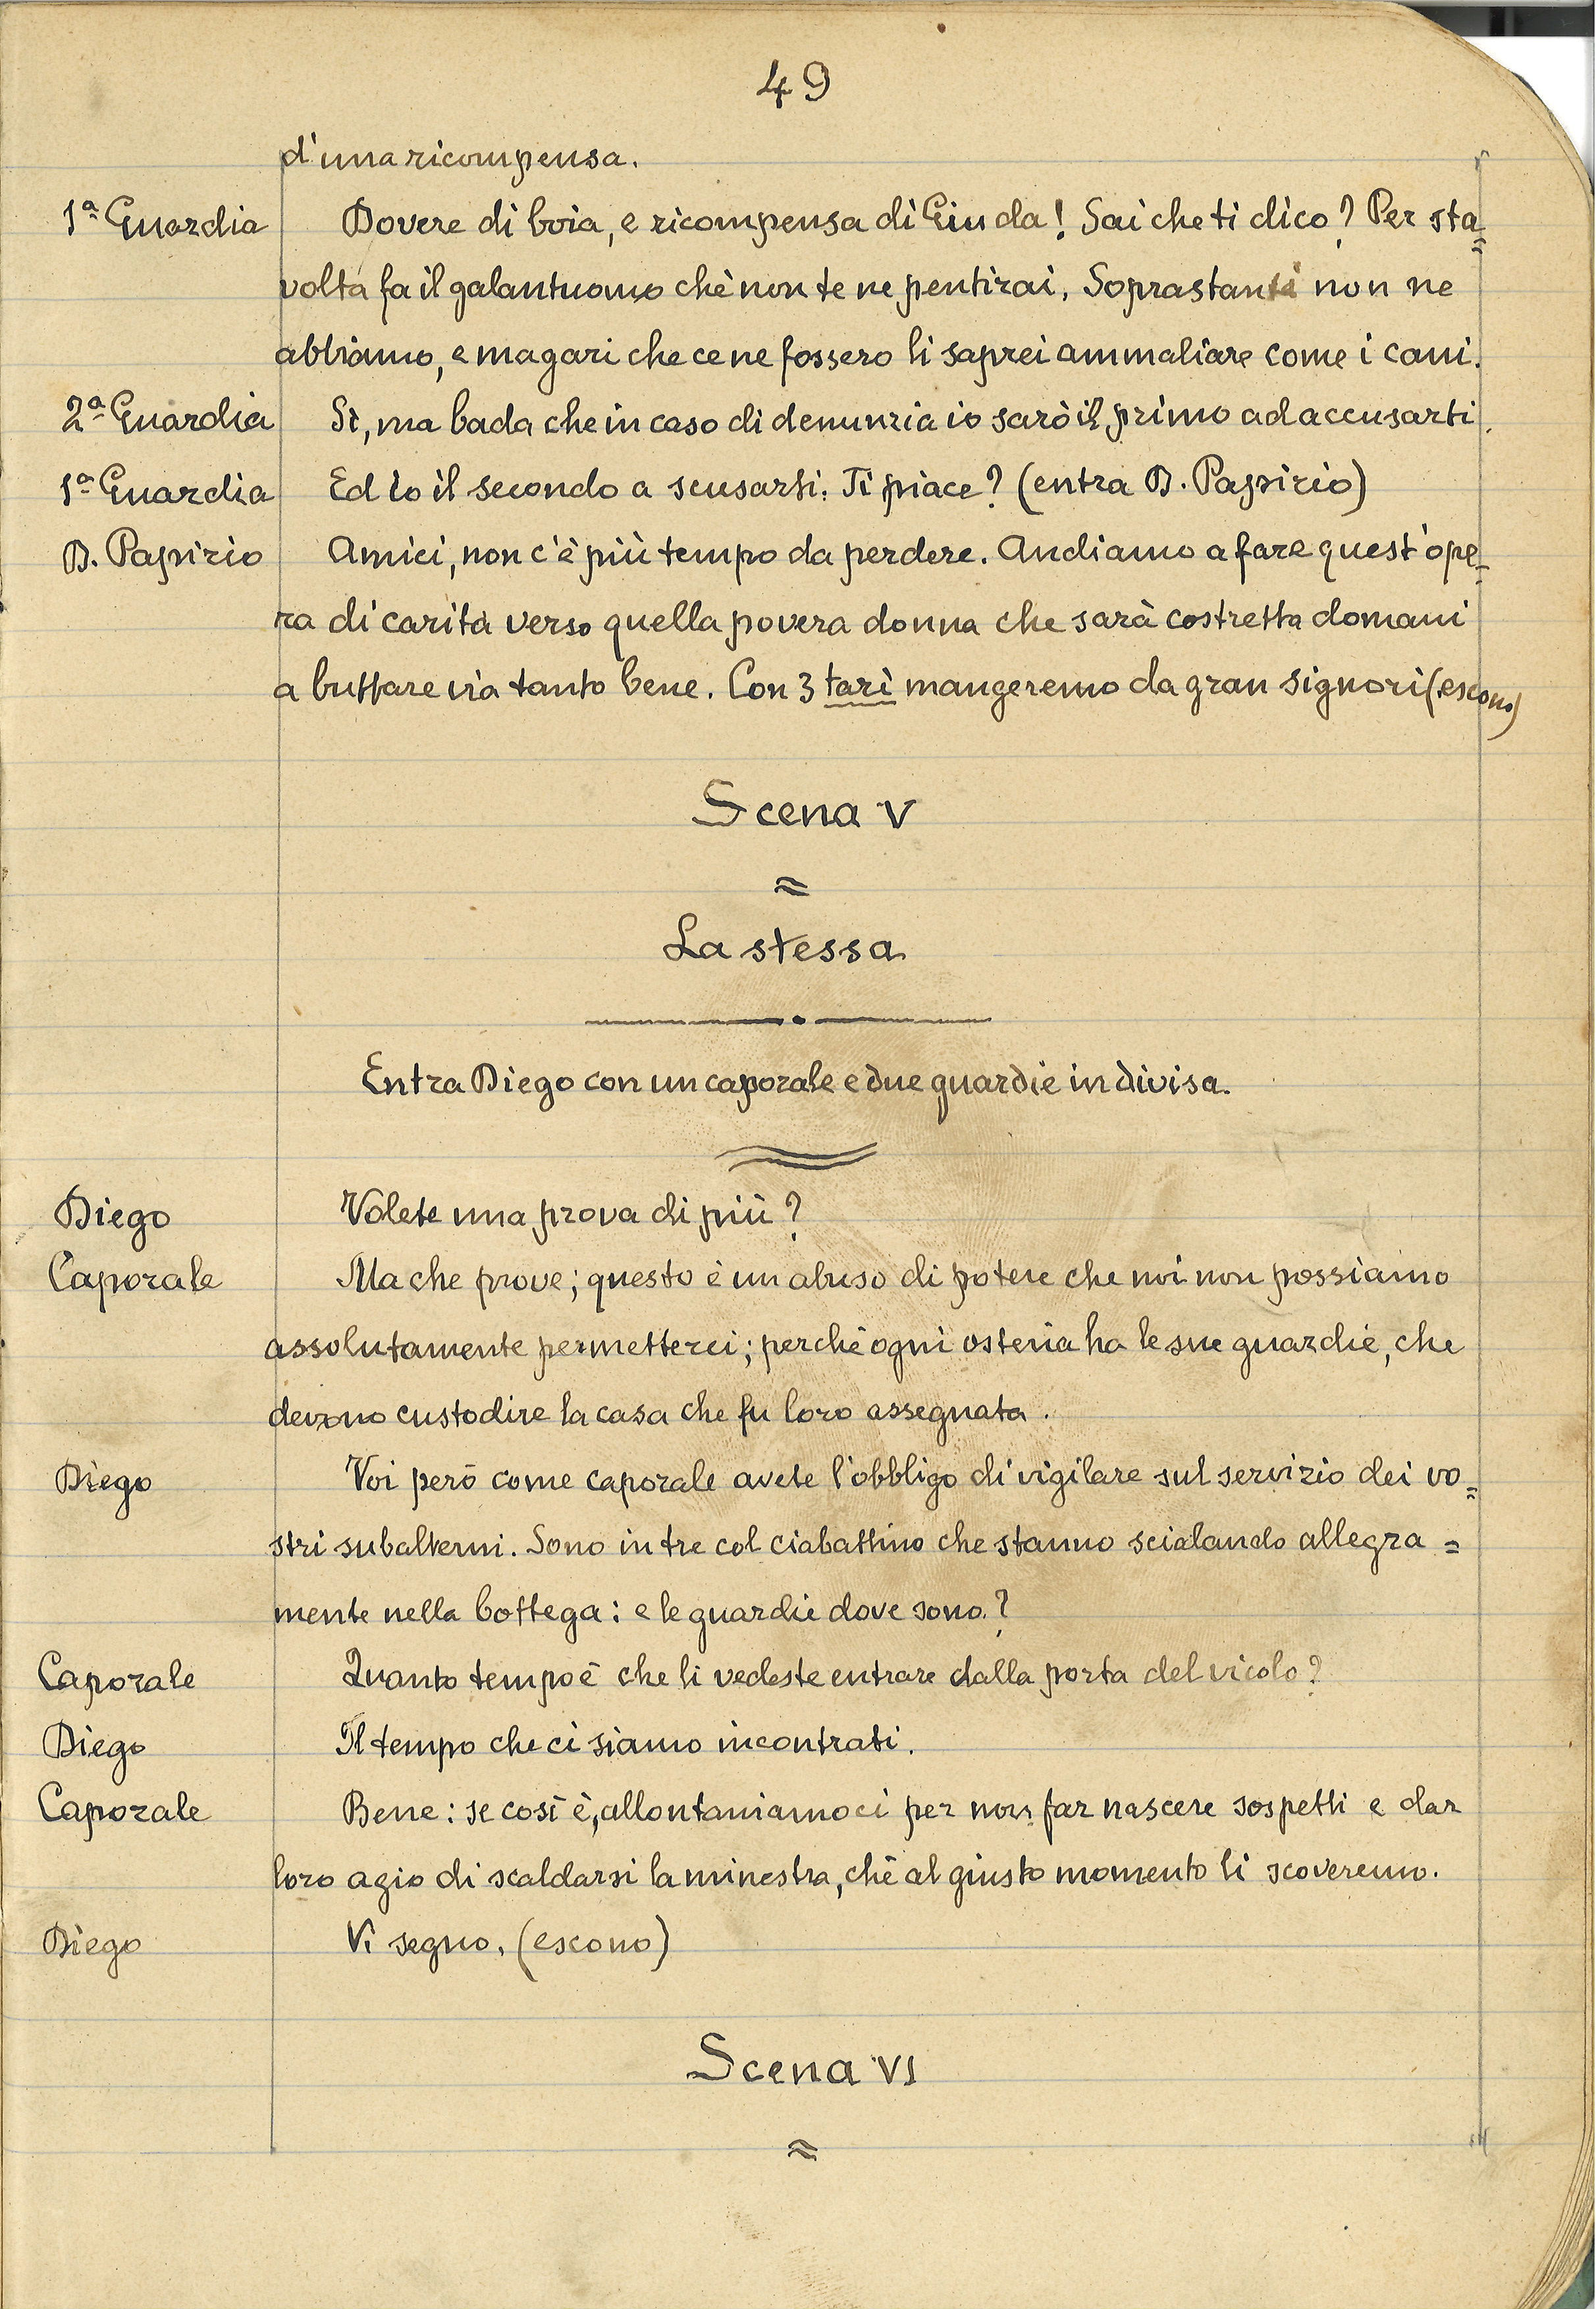 49
d'una ricompensa.
1ª Guardia Dovere di boia, e ricompensa di Giuda! Sai che ti dico? Per sta=
volta fa il galantuomo chè non te ne pentirai. Soprastanti non ne
abbiamo, e magari che ce ne fossero li saprei ammaliare come i cani.
2ª Guardia Sì, ma bada che in caso di denunzia io sarò il primo ad accusarti.
1ª Guardia Ed io il secondo a scusarti. Ti piace? (entra D. Papirio)
D. Papirio Amici, non c'è più tempo da perdere. Andiamo a fare quest'ope=
ra di carità verso quella povera donna che sarà costretta domani
a buttare via tanto bene. Con 3 tarì mangeremo da gran signori (escono)
Scena V
≈
La stessa
Entra Diego con un caporale e due guardie in divisa.
Diego Volete una prova di più?
Caporale Ma che prove; questo è un abuso di potere che noi non possiamo
assolutamente permetterci; perchè ogni osteria ha le sue guardie, che
devono custodire la casa che fu loro assegnata.
Diego Voi però come caporale avete l'obbligo di vigilare sul servizio dei vo=
stri subalterni. Sono in tre col ciabattino che stanno scialando allegra=
mente nella bottega: e le guardie dove sono?
Caporale Quanto tempo è che li vedeste entrare dalla porta del vicolo?
Diego Il tempo che ci siamo incontrati.
Caporale Bene: se così è, allontaniamoci per non far nascere sospetti e dar
loro agio di scaldarsi la minestra, chè al giusto momento li scoveremo.
Diego Vi seguo. (escono)
Scena VI
≈